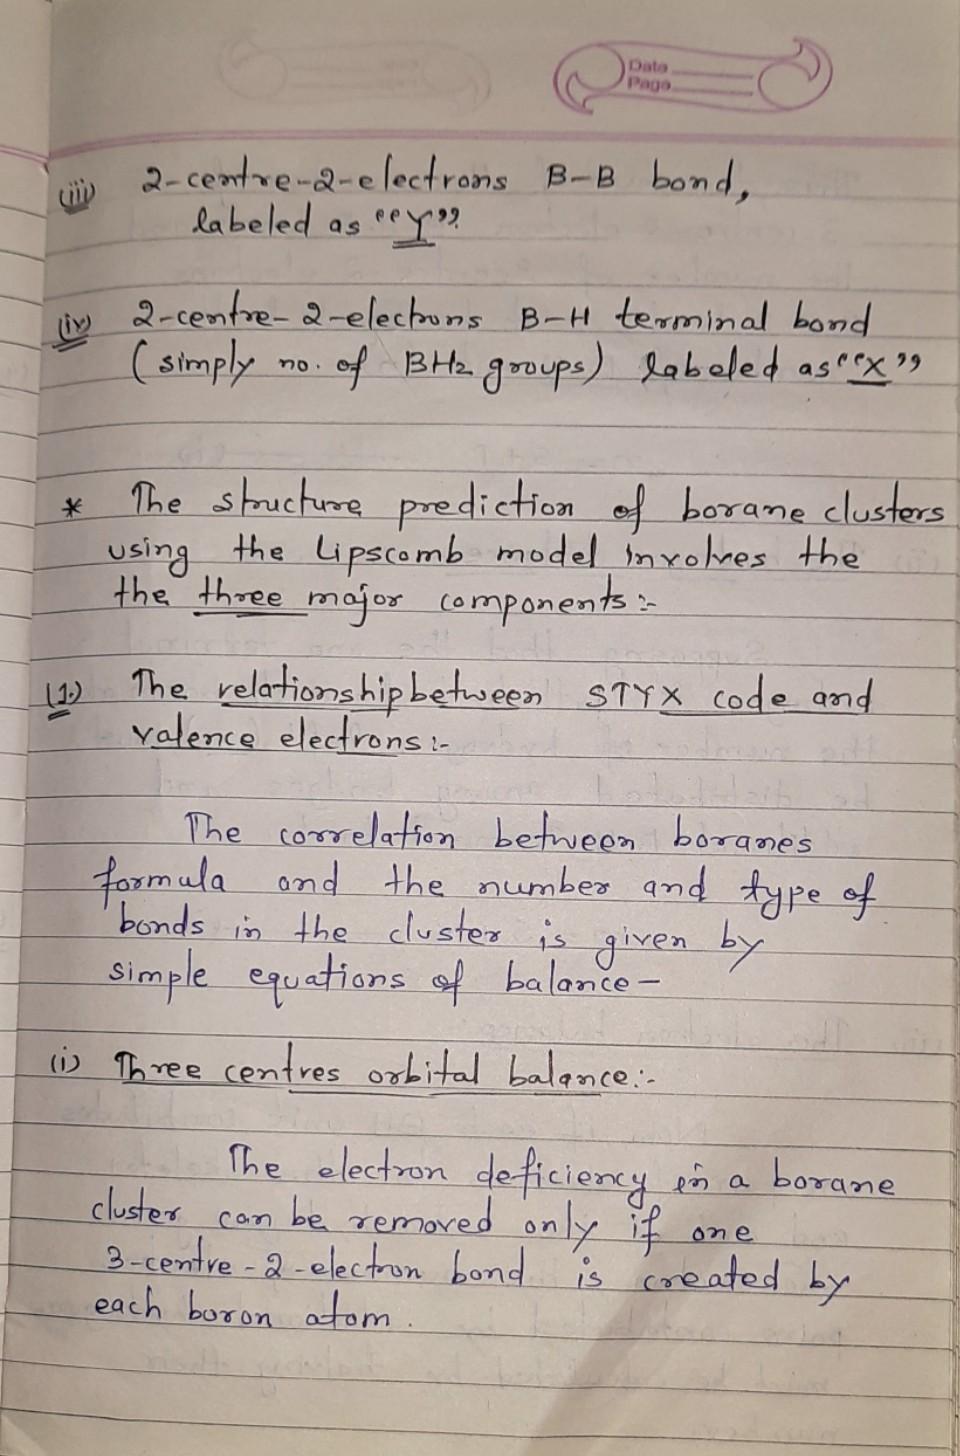 Date
Page
(iii) 2-centre-2-electrons B-B bond,
labeled as "Y"
(iv) 2-centre-2-electrons B-H terminal bond
(simply no. of BH2 groups) labeled as "x"
* The structure prediction of borane clusters
using the Lipscomb model involves the
the three major components :-
(1.) The relationship between STYX code and
valence electrons :-
The correlation between boranes
formula and the number and type of
bonds in the cluster is given by
simple equations of balance -
(i) Three centres orbital balance :-
The electron deficiency in a borane
cluster can be removed only if one
3-centre-2-electron bond is created by
each boron atom.